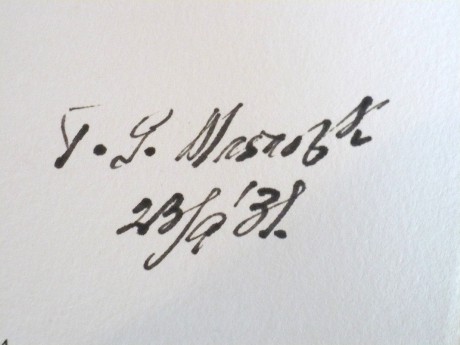 T. G. Masaryk
23/9 '31.